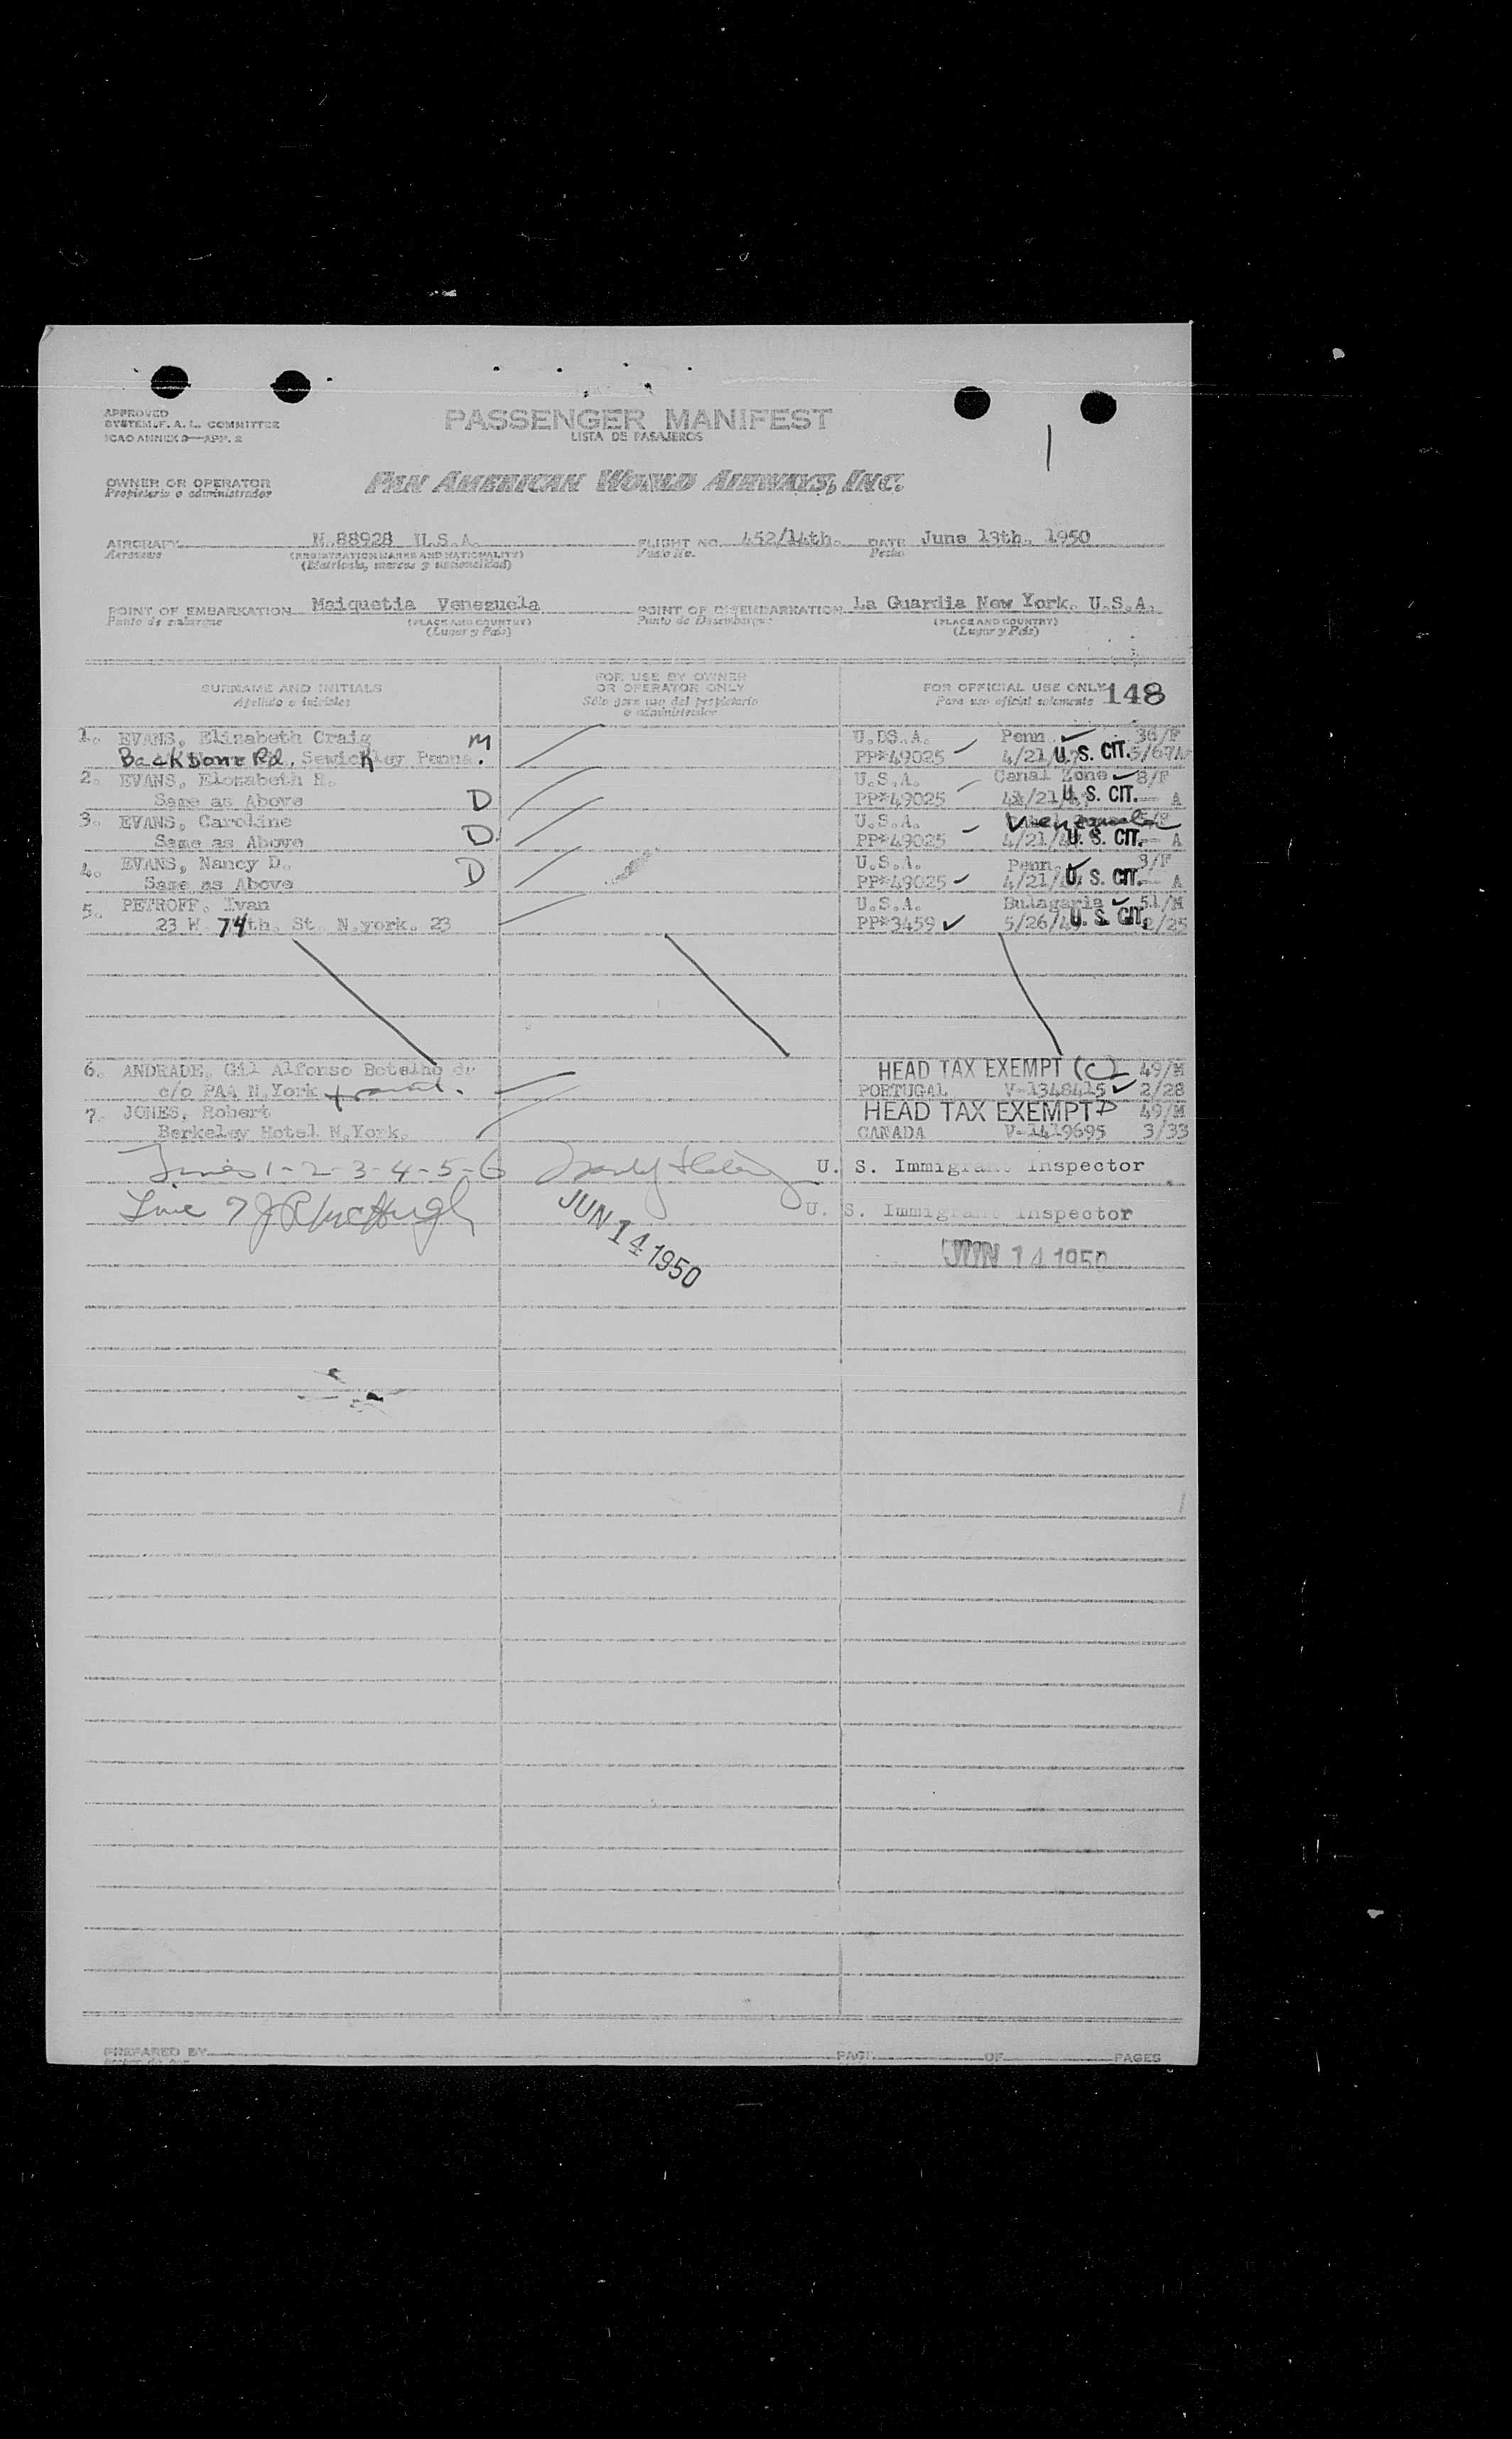 APPROVED
SYSTEM F. A. L. COMMITTEE
ICAO ANNEX 9—APP. 2
PASSENGER MANIFEST
LISTA DE PASAJEROS
OWNER OR OPERATOR
Propietario o administrador
PAN AMERICAN WORLD AIRWAYS, INC.
AIRCRAFT N.88928 U.S.A. FLIGHT NO. 452/14th. DATE June 13th. 1950
Aeronave (REGISTRATION MARKS AND NATIONALITY) Vuelo No. Fecha
(Matrícula, marcas y nacionalidad)
POINT OF EMBARKATION Maiquetia Venezuela POINT OF DISEMBARKATION La Guardia New York. U.S.A.
Punto de embarque (PLACE AND COUNTRY) Punto de Desembarque (PLACE AND COUNTRY)
(Lugar y País) (Lugar y País)
SURNAME AND INITIALS FOR USE BY OWNER OR OPERATOR ONLY FOR OFFICIAL USE ONLY 148
Apellido e iniciales Sólo para uso del propietario o administrador Para uso oficial solamente
1. EVANS, Elisabeth Craig M U.DS.A. Penn 36/F
Backbone Rd, Sewickley Penna. PP*49025 4/21/ U. S. CIT. 5/67A
2. EVANS, Elozabeth R. U.S.A. Canal Zone 8/F
Same as Above D PP*49025 /21/ U. S. CIT. A
3. EVANS, Caroline U.S.A. Venezuela
Same as Above D. PP*49025 4/21/ U. S. CIT. A
4. EVANS, Nancy D. U.S.A. Penn. 3/F
Same as Above D PP*49025 4/21/ U. S. CIT. A
5. PETROFF. Ivan U.S.A. Bulagaria 51/M
23 W. 74th. St. N.york. 23 PP*3459 5/26/49 U. S. CIT. /25
6. ANDRADE, Gil Alfonso Botelho de HEAD TAX EXEMPT (C) 49/M
c/o PAA N.York PORTUGAL V-1348415 2/28
7. JONES, Robert HEAD TAX EXEMPT P 49/M
Berkeley Hotel N.York. CANADA V-1419695 3/33
Lines 1-2-3-4-5-6 U. S. Immigrant Inspector
Line 7 J R McHugh U. S. Immigrant Inspector
JUN 14 1950
JUN 14 1950
PREPARED BY PAGE OF PAGES